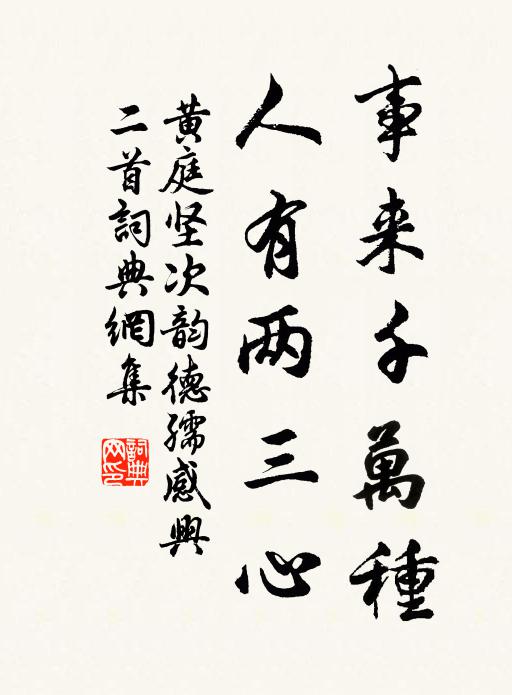 事来千萬種
人有两三心
黄庭坚次韵德孺感興
二首詞典網集
詞典網印